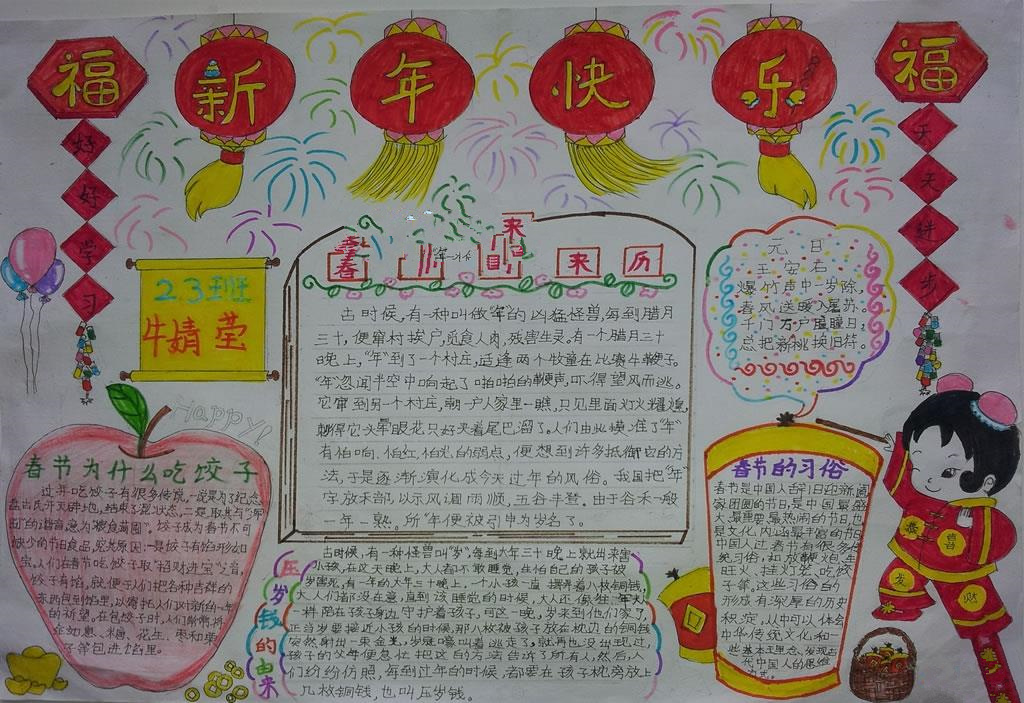 福
新年快乐
福
好好学习
天天进步
2.3班
牛婧莹
Happy!
春
来
来历
古时候,有一种叫做"年"的凶猛怪兽,每到腊月
三十,便窜村挨户,觅食人肉,残害生灵。有一个腊月三十
晚上,"年"到了一个村庄,适逢两个牧童在比赛牛鞭子。
"年"忽闻半空中响起了啪啪的鞭声,吓得望风而逃。
它窜到另一个村庄,朝一户人家里一瞧,只见里面灯火辉煌,
刺得它头晕眼花只好夹着尾巴溜了。人们由此摸准了"年"
有怕响、怕红、怕光的弱点,便想到许多抵御它的方
法,于是逐渐演化成今天过年的风俗。我国把"年"
字放禾部,以示风调雨顺,五谷丰登。由于谷禾一般
一年一熟。所"年"便被引申为岁名了。
元日
王安石
爆竹声中一岁除,
春风送暖入屠苏。
千门万户曈曈日,
总把新桃换旧符。
春节为什么吃饺子
过年吃饺子有很多传说,一说是为了纪念
盘古氏开天辟地,结束了混状态,二是取其与
的谐音,意为
饺子成为春节不可
缺少的节日食品,究其原因:一是饺子有馅形如元
宝,人们在春节吃饺子取"招财进宝"之音,
饺子有馅,就便于人们把各种吉祥的
东西包到馅里,以寄托人们对新的一年
的祈望。在包饺子时,人们
金如意、糖、花生、枣和栗
子等包进馅里。
压岁钱的由来
古时候,有一种怪兽叫"岁",每到大年三十晚上就出来害
小孩,在这天晚上,大人都不敢睡觉,在怕自己的孩子被
岁害死,有一年的大年三十晚上,一个小孩一直摆弄着八枚铜钱,
大人们都没在意,直到该睡觉的时候,大人还像往年
一样陪在孩子身边守护着孩子,可这一晚,岁来到他们家了,
正当岁要接近小孩的时候,那八枚被孩子放在枕边的铜钱
突然射出一束金光,岁
叫着逃走了,就再也没出现过,
孩子的父母便急忙把这个方法告诉了所有人,然后人
们纷纷仿照,每到过年的时候,都要在孩子枕旁放上
几枚铜钱,也叫压岁钱。
春节的习俗
春节是中国人
家团圆的节日,是中国最盛
大、最重要、最热闹的节日,也
是文化内涵最丰富的节日
中国人过春节有很多传
统习俗,如
旺火、挂灯笼、吃饺
子等。这些习俗各自的
形成有深厚的历史
积淀,从中可以体会
中华传统文化和一
些基本主理念,发现古
代中国人的思维
方式。
恭
喜
发
财